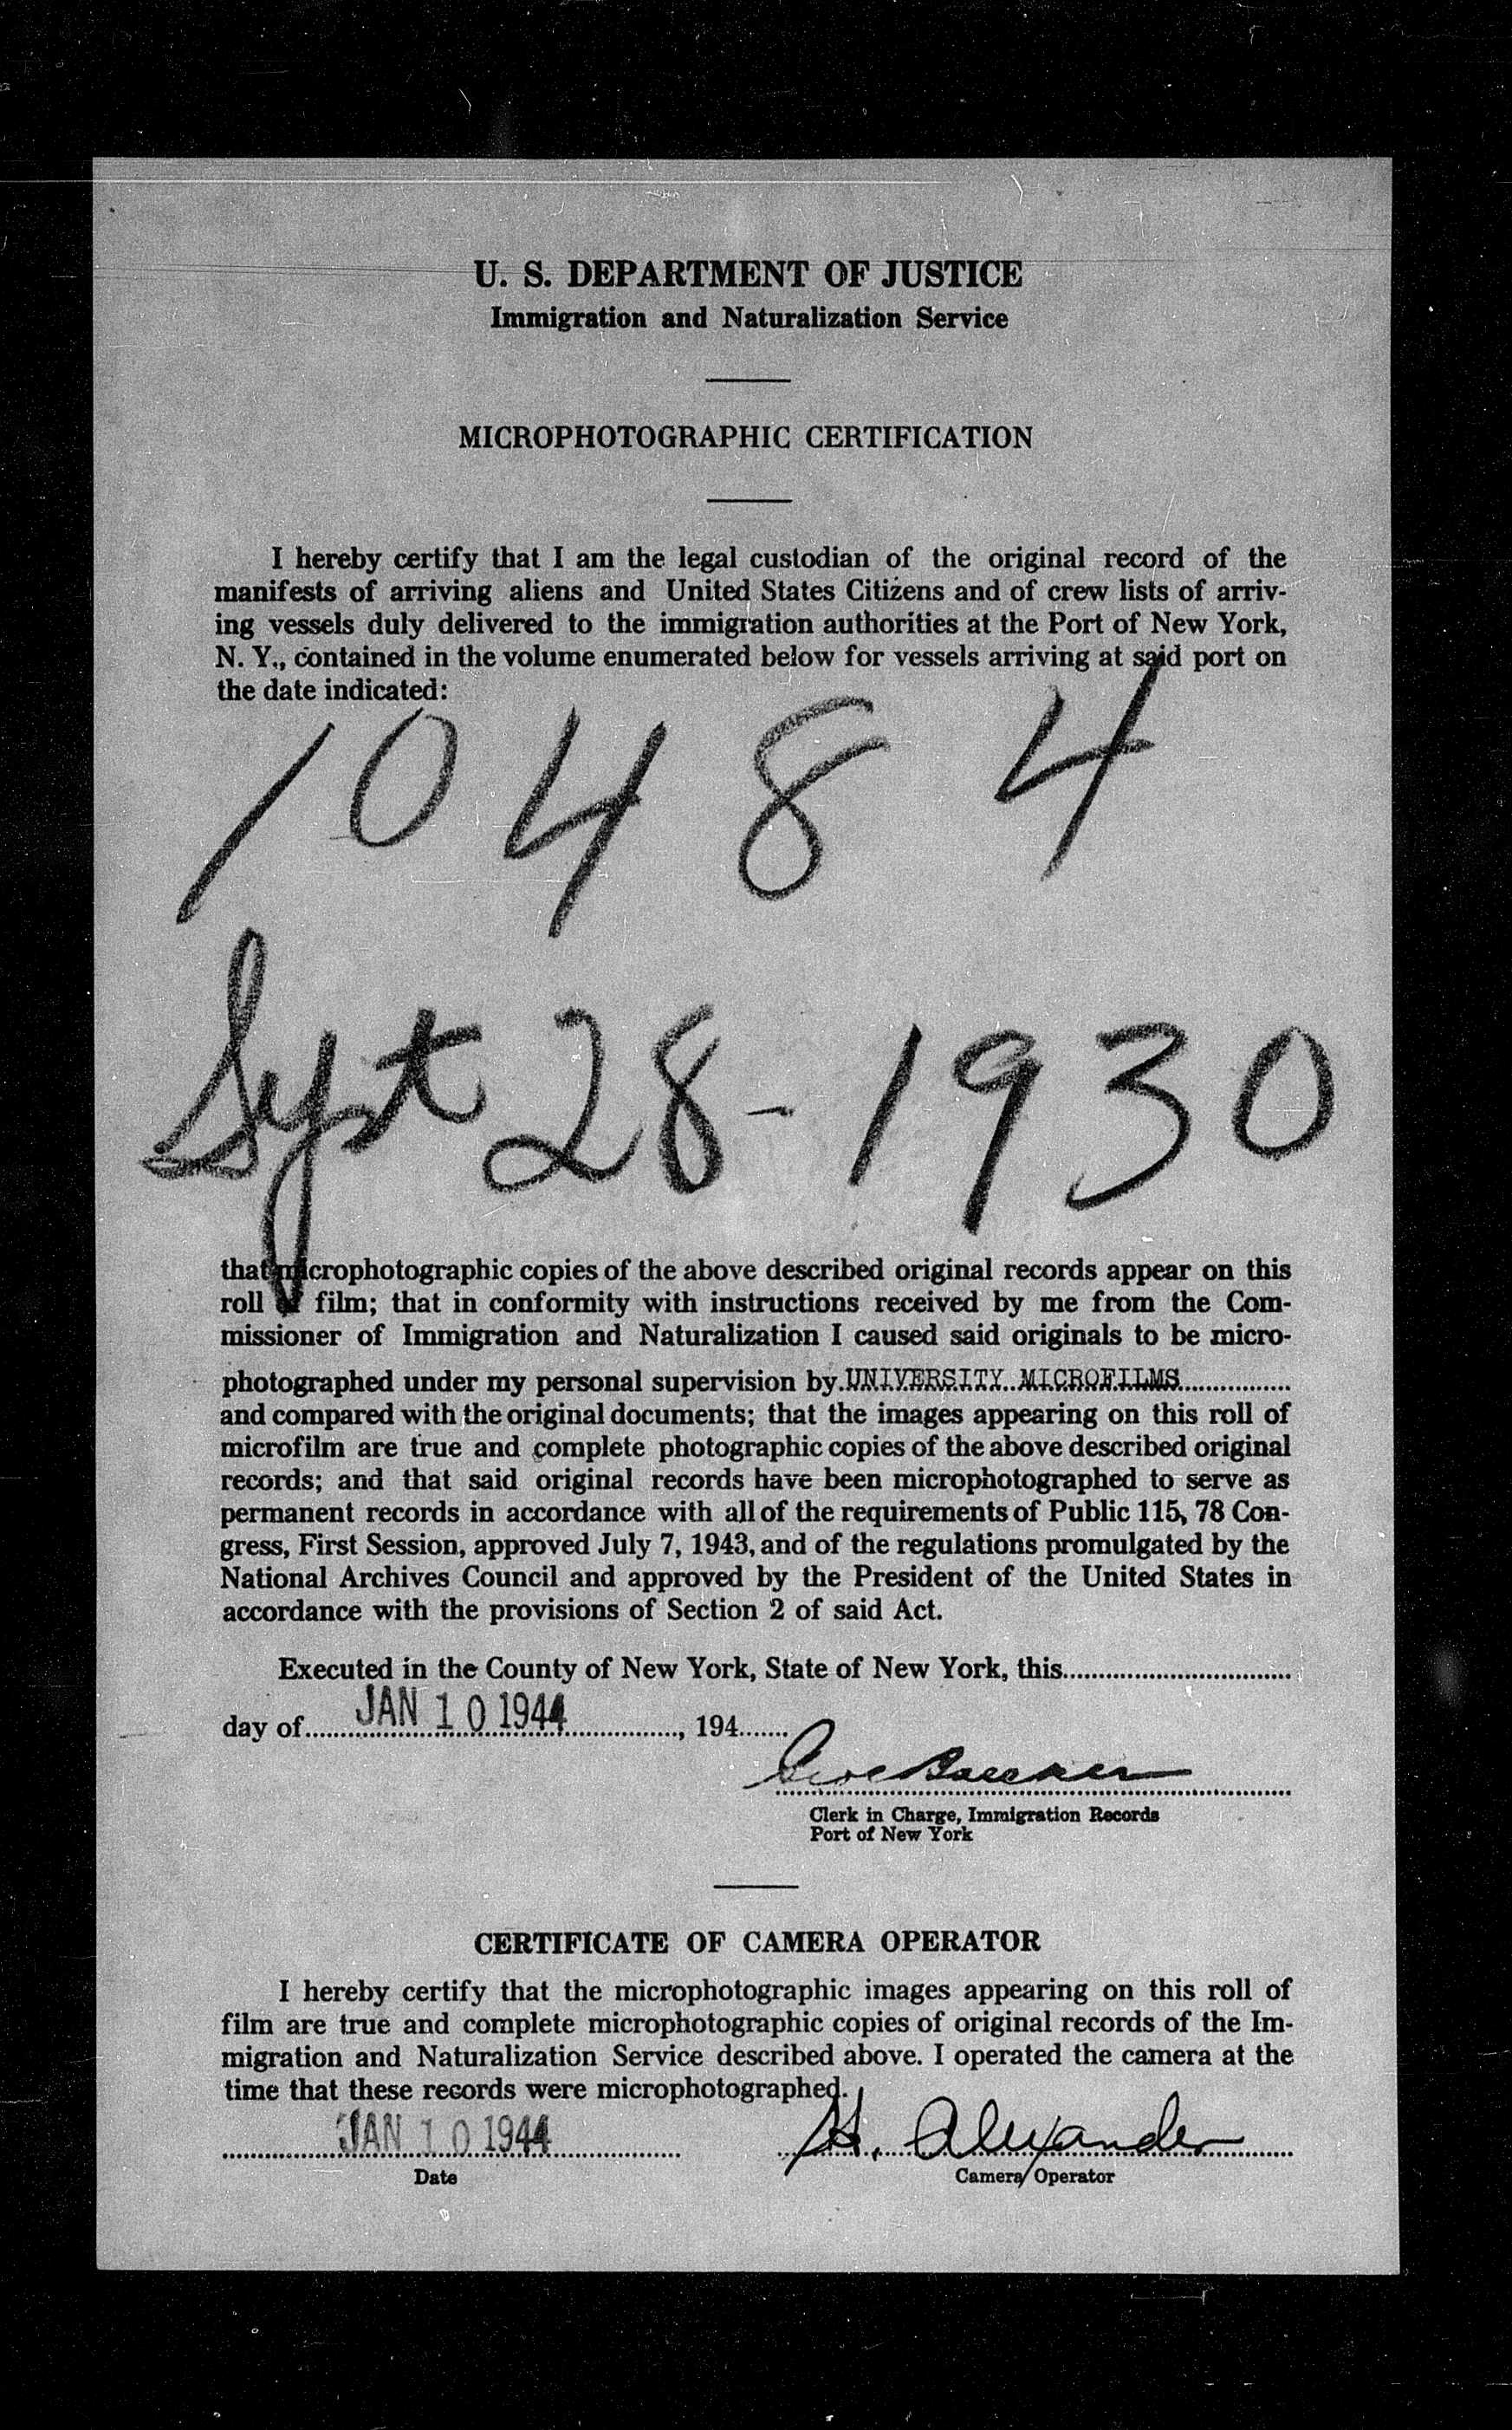 U. S. DEPARTMENT OF JUSTICE
Immigration and Naturalization Service
MICROPHOTOGRAPHIC CERTIFICATION
I hereby certify that I am the legal custodian of the original record of the
manifests of arriving aliens and United States Citizens and of crew lists of arriv-
ing vessels duly delivered to the immigration authorities at the Port of New York,
N. Y., contained in the volume enumerated below for vessels arriving at said port on
the date indicated:
10484
Sept 28-1930
that microphotographic copies of the above described original records appear on this
roll of film; that in conformity with instructions received by me from the Com-
missioner of Immigration and Naturalization I caused said originals to be micro-
photographed under my personal supervision by UNIVERSITY MICROFILMS
and compared with the original documents; that the images appearing on this roll of
microfilm are true and complete photographic copies of the above described original
records; and that said original records have been microphotographed to serve as
permanent records in accordance with all of the requirements of Public 115, 78 Con-
gress, First Session, approved July 7, 1943, and of the regulations promulgated by the
National Archives Council and approved by the President of the United States in
accordance with the provisions of Section 2 of said Act.
Executed in the County of New York, State of New York, this
day of JAN 10 1944, 194
Clerk in Charge, Immigration Records
Port of New York
CERTIFICATE OF CAMERA OPERATOR
I hereby certify that the microphotographic images appearing on this roll of
film are true and complete microphotographic copies of original records of the Im-
migration and Naturalization Service described above. I operated the camera at the
time that these records were microphotographed.
JAN 10 1944 H. Alexander
Date Camera Operator